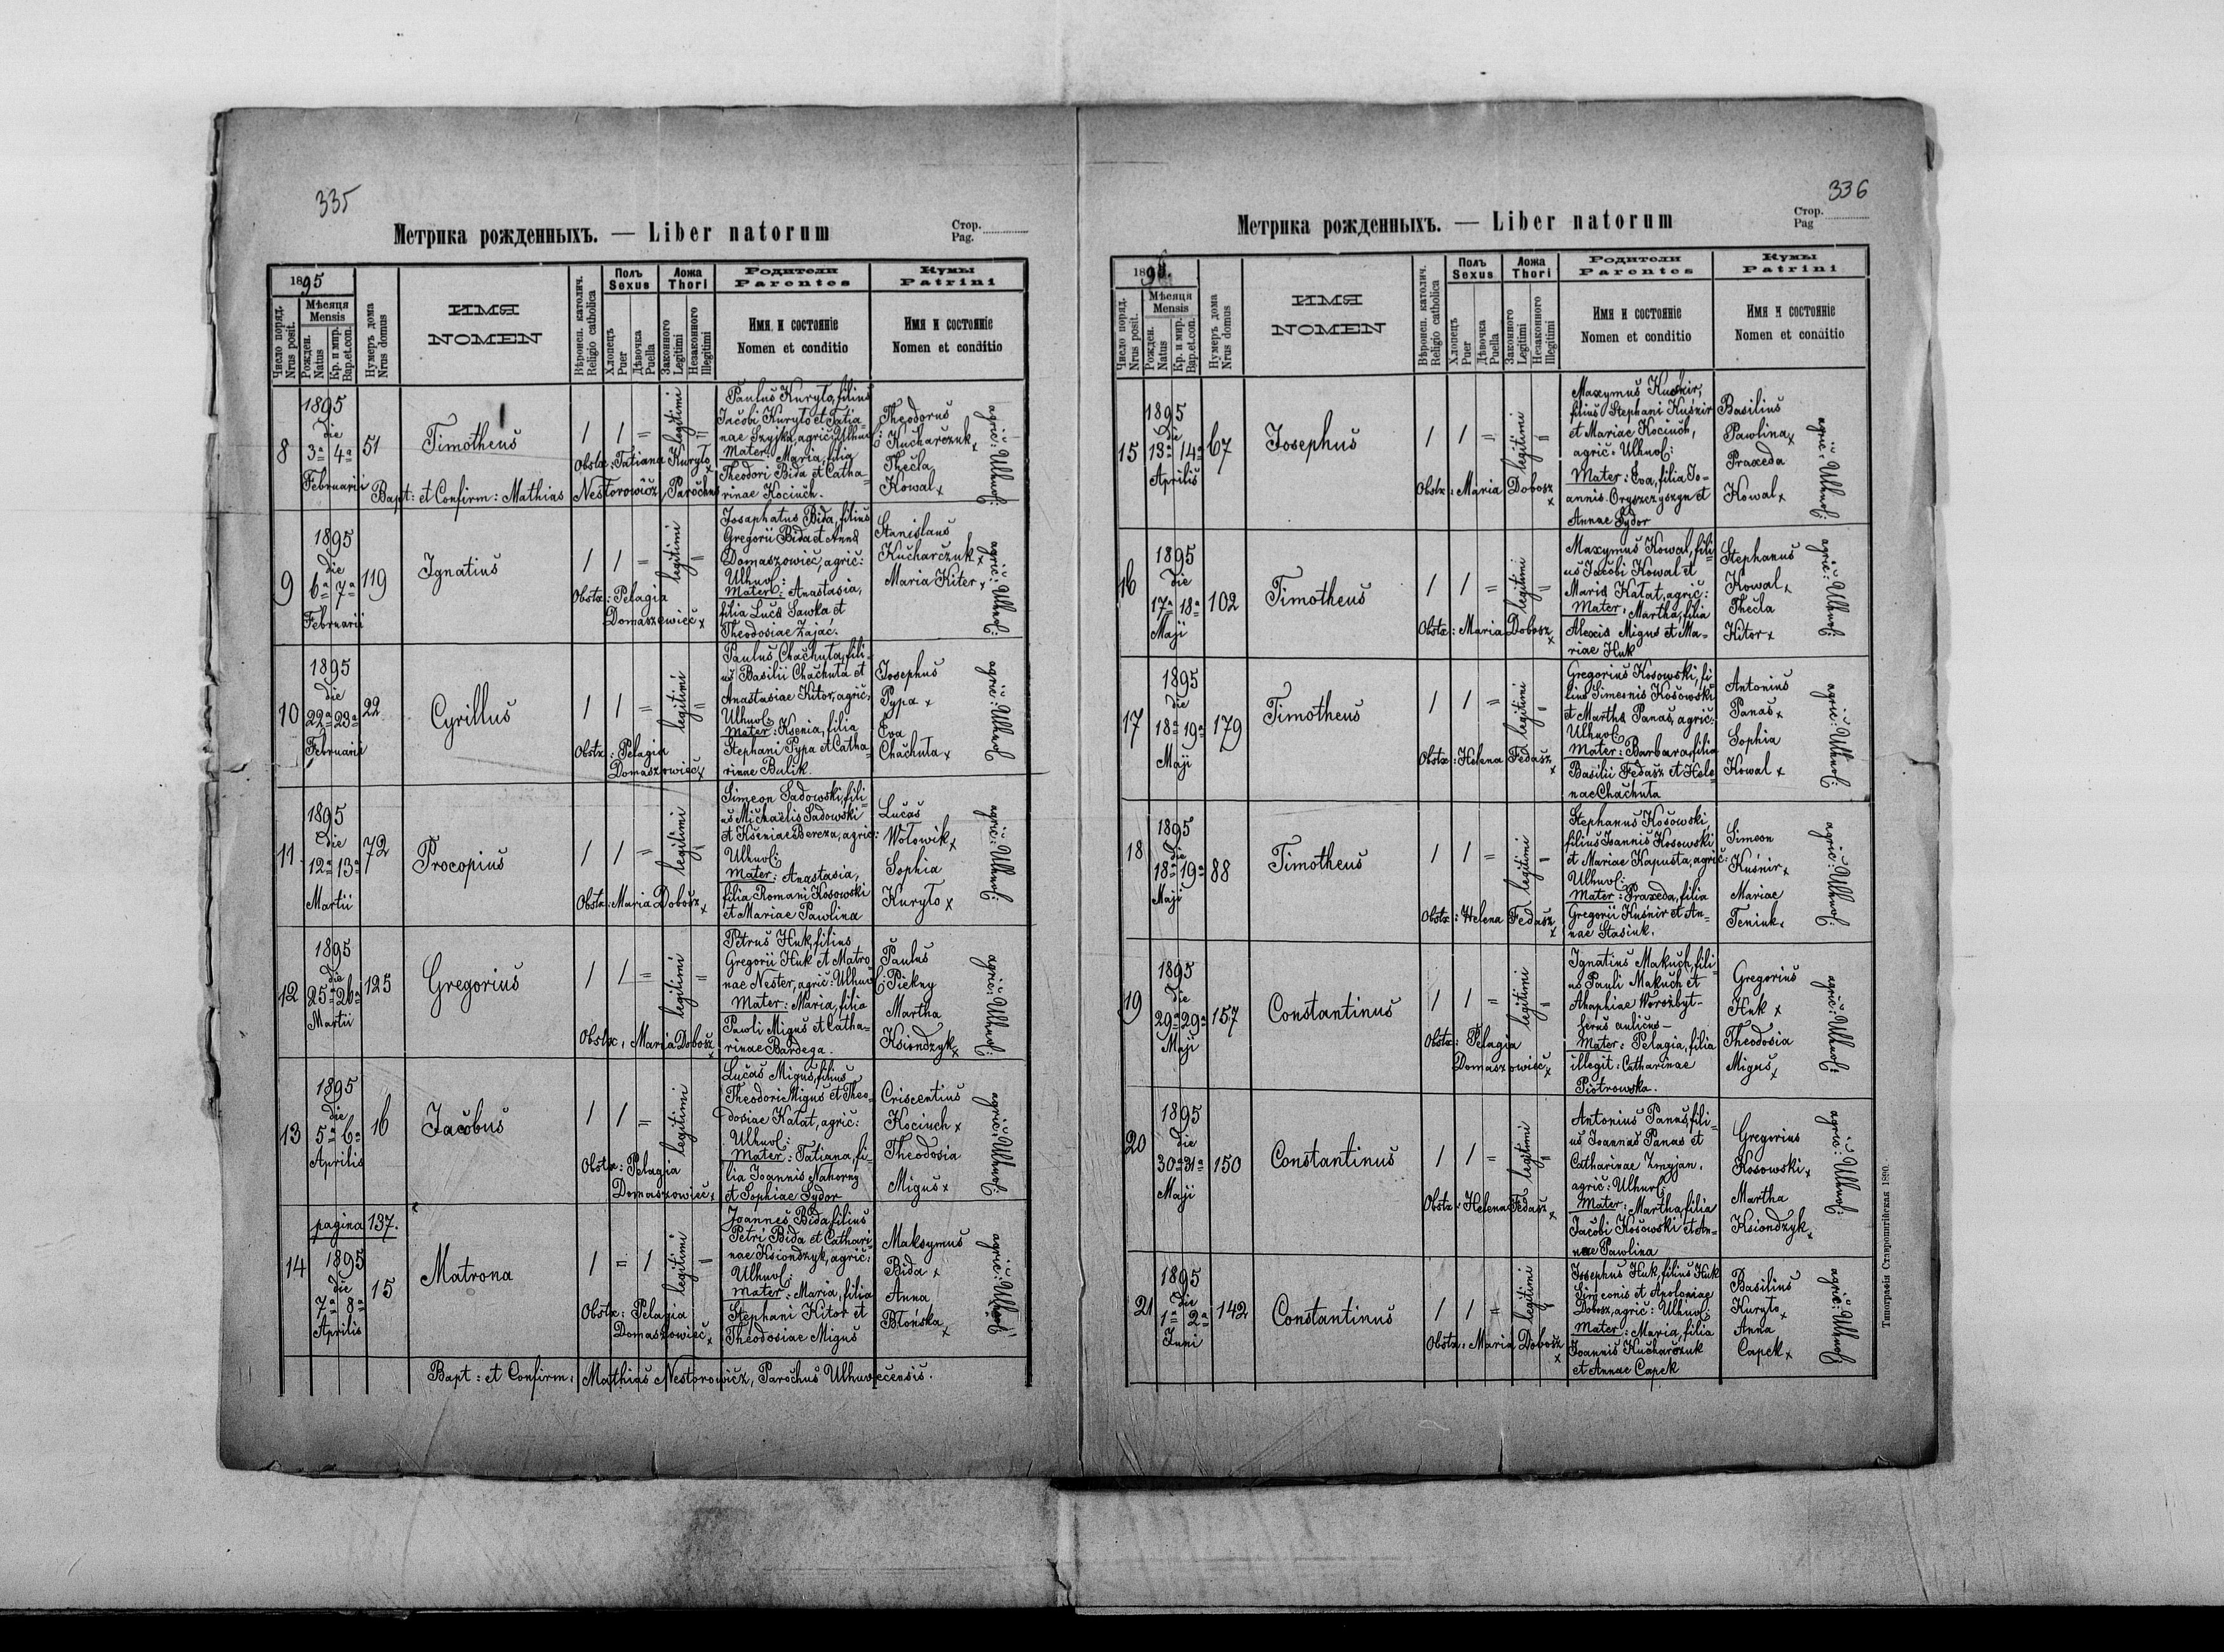 335
Метрика рожденныхъ. — Liber natorum
Стор.
Pag.
1895
Число поряд.
Nrus posit.
Мѣсяця
Mensis
Рожден.
Natus
Кр. и мир.
Bap.et.con.
Нумеръ дома
Nrus domus
ИМЯ
NOMEN
Вѣроисп. католич.
Religio catholica
Полъ
Sexus
Хлопецъ
Puer
Дѣвочка
Puella
Ложа
Thori
Законного
Legitimi
Незаконного
Illegitimi
Родители
Parentes
Имя и состоянiе
Nomen et conditio
Кумы
Patrini
Имя и состоянiе
Nomen et conditio
8
1895
die
3a 4a
Februarii
51
Timotheus
1 1 =
legitimi
=
Obstx: Tatiana Kuryło x
Bapt: et Confirm: Mathias Nestorowicz, Parochus
Paulus Kuryło, filius
Jacobi Kuryło et Tatia-
nae Szyjka, agric: Ulhuv:
Mater: Maria, filia
Theodori Bida et Catha-
rinae Kociuch.
Theodorus
Kucharczuk x
Thecla
Kowal x
agric: Ulhuv:
9
1895
die
6a 7a
Februarii
119
Ignatius
1 1 =
legitimi
=
Obstx: Pelagia
Domaszowieć x
Josaphatus Bida, filius
Gregorii Bida et Anna
Domaszowieć, agric:
Ulhuv:
Mater: Anastasia,
filia Luca Sawka et
Theodosiae Zająć.
Stanislaus
Kucharczuk x
Maria Kiter x
agric: Ulhuv:
10
1895
die
22a 23a
Februarii
22
Cyrillus
1 1 =
legitimi
=
Obstx: Pelagia
Domaszowieć x
Paulus Chachuta, fili-
us Basilii Chachuta et
Anastasiae Kitor, agric:
Ulhuv:
Mater: Ksenia, filia
Stephani Pypa et Catha-
rinae Bulik.
Josephus
Pypa x
Eva
Chachuta x
agric: Ulhuv:
11
1895
die
12a 13a
Martii
72
Procopius
1 1 =
legitimi
=
Obstx: Maria Dobosz x
Simeon Sadowski, fili-
us Michaëlis Sadowski
et Kseniae Bereza, agric:
Ulhuv:
Mater: Anastasia,
filia Romani Kosowski
et Mariae Pawlina
Lucas
Wołowik x
Sophia
Kuryło x
agric: Ulhuv:
12
1895
die
25a 26a
Martii
125
Gregorius
1 1 =
legitimi
=
Obstx: Maria Dobosz x
Petrus Huk, filius
Gregorii Huk et Matro
nae Nester, agric: Ulhuv:
Mater: Maria, filia
Pawli Migus et Catha-
rinae Bardega.
Paulus
Piekny
Martha
Ksiondzyk x
agric: Ulhuv:
13
1895
die
5a 6a
Aprilis
16
Jacobus
1 1 =
legitimi
Obstx: Pelagia
Domaszowieć x
Lucas Migus, filius
Theodori Migus et Theo-
dosiae Kałat, agric:
Ulhuv:
Mater: Tatiana, fi-
lia Joannis Nahorny
et Sophiae Sydor
Criscentius
Kociuch x
Theodosia
Migus x
agric: Ulhuv:
pagina 137.
14
1895
die
7a 8a
Aprilis
15
Matrona
1 = 1
legitimi
=
Obstx: Pelagia
Domaszowieć x
Joannes Bida, filius
Petri Bida et Cathari-
nae Ksiondzyk, agric:
Ulhuv:
Mater: Maria, filia
Stephani Kitor et
Theodosiae Migus
Maksymus
Bida x
Anna
Błońska x
agric: Ulhuv:
Bapt: et Confirm: Mathias Nestorowicz, Parochus Ulhuvecensis.
336
Метрика рожденныхъ. — Liber natorum
Стор.
Pag
Число поряд.
Nrus posit.
Мѣсяця
Mensis
Рожден.
Natus
Кр. и мир.
Bap.et.con.
Нумеръ дома
Nrus domus
ИМЯ
NOMEN
Вѣроисп. католич.
Religio catholica
Полъ
Sexus
Хлопецъ
Puer
Дѣвочка
Puella
Ложа
Thori
Законного
Legitimi
Незаконного
Illegitimi
Родители
Parentes
Имя и состоянiе
Nomen et conditio
Кумы
Patrini
Имя и состоянiе
Nomen et conditio
15
1895
die
13a 14a
Aprilis
67
Josephus
1 1 =
legitimi
=
Obstx: Maria Dobosz x
Maxymus Kuśnir,
filius Stephani Kuśnir
et Mariae Kociuch,
agric: Ulhuv:
Mater: Eva, filia Jo-
annis Oryszczyszyn et
Annae Sydor
Basilius
Pawlina x
Praxeda
Kowal x
agric: Ulhuv:
16
1895
die
17a 18a
Maji
102
Timotheus
1 1 =
legitimi
=
Obstx: Maria Dobosz x
Maxymus Kowal, fili-
us Jacobi Kowal et
Maria Kałat, agric:
Mater: Martha, filia
Alexis Migus et Ma-
riae Huk
Stephanus
Kowal x
Thecla
Kitor x
agric: Ulhuv:
17
1895
die
18a 19a
Maji
179
Timotheus
1 1 =
legitimi
=
Obstx: Helena Fedasz x
Gregorius Kosowski, fi
lius Simeonis Kosowski
et Martha Panas, agric:
Ulhuv:
Mater: Barbara, filia
Basilii Fedasz et Hele-
nae Chachuta
Antonius
Panas x
Sophia
Kowal x
agric: Ulhuv:
18
1895
die
18a 19a
Maji
88
Timotheus
1 1 =
legitimi
=
Obstx: Helena Fedasz x
Stephanus Kosowski,
filius Joannis Kosowski
et Mariae Kapusta, agric:
Ulhuv:
Mater: Praxeda, filia
Gregorii Kuśnir et An-
nae Stasiuk.
Simeon
Kuśnir x
Mariae
Teniuk x
agric: Ulhuv:
19
1895
die
29a 29a
Maji
157
Constantinus
1 1 =
legitimi
=
Obstx: Pelagia
Domaszowieć x
Ignatius Makuch, fili-
us Pauli Makuch et
Ahaphiae
aulicus —
Mater: Pelagia, filia
illegit: Catharinae
Piotrowska.
Gregorius
Huk x
Theodosia
Migus x
agric: Ulhuv:
20
1895
die
30a 31a
Maji
150
Constantinus
1 1 =
legitimi
=
Obstx: Helena Fedasz x
Antonius Panas, fili-
us Joannas Panas et
Catharinae Zmyjan,
agric: Ulhuv:
Mater: Martha, filia
Jacobi Kosowski et An-
nae Pawlina
Gregorius
Kosowski x
Martha
Ksiondzyk x
agric: Ulhuv:
21
1895
die
1a 2a
Juni
142
Constantinus
1 1 =
legitimi
=
Obstx: Maria Dobosz x
Josephus Huk, filius Huk
Simeonis et Apoloniae
Dobosz, agric: Ulhuv:
Mater: Maria, filia
Joannis Kucharczuk
et Annae Capek
Basilius
Kuryło x
Anna
Capek x
agric: Ulhuv:
Типографія Ставропигійская 1890.